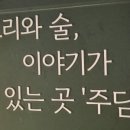 리와 술,
이야기가
있는 곳 '주담